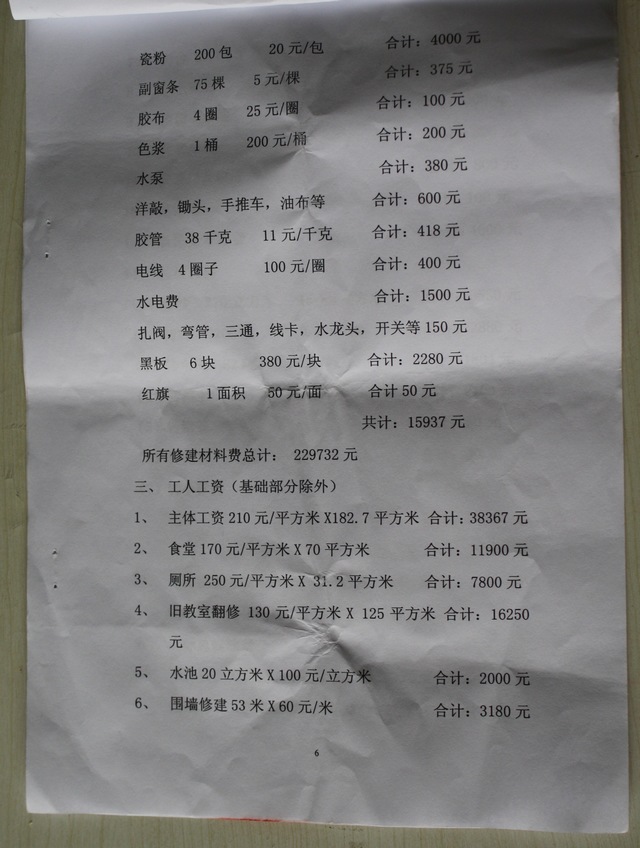 瓷粉 200包 20元/包 合计：4000元
副窗条 75棵 5元/棵 合计：375元
胶布 4圈 25元/圈 合计：100元
色浆 1桶 200元/桶 合计：200元
水泵 合计：380元
洋敲，锄头，手推车，油布等 合计：600元
胶管 38千克 11元/千克 合计：418元
电线 4圈子 100元/圈 合计：400元
水电费 合计：1500元
扎阀，弯管，三通，线卡，水龙头，开关等150元
黑板 6块 380元/块 合计：2280元
红旗 1面积 50元/面 合计50元
共计：15937元
所有修建材料费总计： 229732元
三、 工人工资（基础部分除外）
1、 主体工资210元/平方米X182.7平方米 合计:38367元
2、 食堂170元/平方米X70平方米 合计:11900元
3、 厕所 250元/平方米X 31.2平方米 合计:7800元
4、 旧教室翻修 130元/平方米X 125平方米 合计:16250
元
5、 水池20立方米X100元/立方米 合计:2000元
6、 围墙修建53米X60元/米 合计:3180元
6